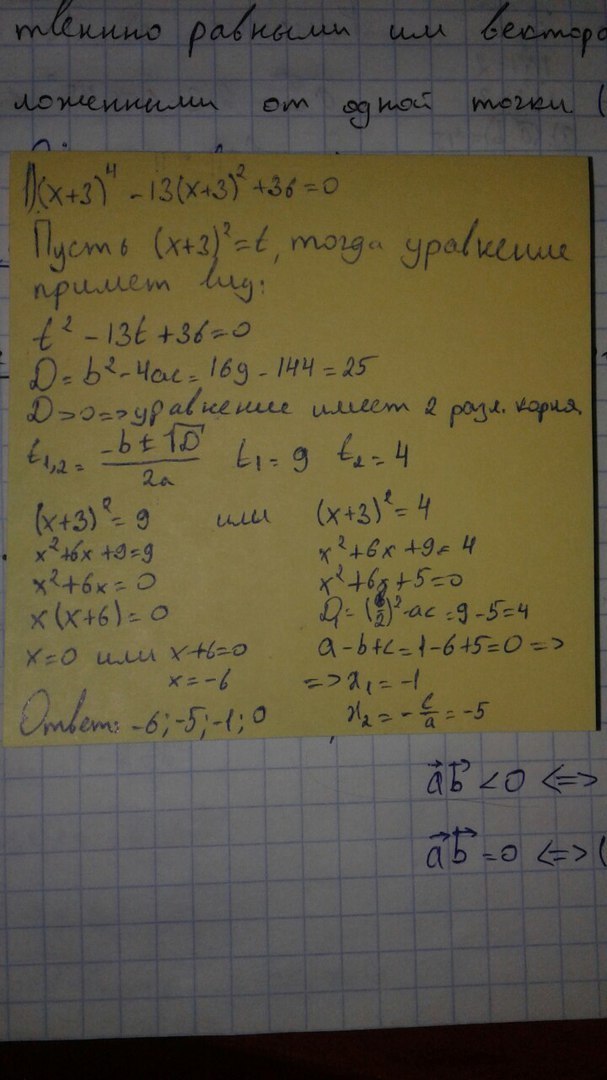 твенно равными им векторо
ложенными от одной точки (
1) (x+3)⁴ - 13(x+3)² + 36 = 0
Пусть (x+3)² = t, тогда уравнение
примет вид:
t² - 13t + 36 = 0
D = b² - 4ac = 169 - 144 = 25
D > 0 => уравнение имеет 2 разл. корня
t₁,₂ = (-b ± √D)/2a t₁ = 9 t₂ = 4
(x+3)² = 9 или (x+3)² = 4
x² + 6x + 9 = 9 x² + 6x + 9 = 4
x² + 6x = 0 x² + 6x + 5 = 0
x(x+6) = 0 D₁ = (6/2)² - ac = 9 - 5 = 4
x = 0 или x+6 = 0 a - b + c = 1 - 6 + 5 = 0 =>
x = -6 => x₁ = -1
Ответ: -6; -5; -1; 0 x₂ = -c/a = -5
a⃗b⃗ < 0 <=>
a⃗b⃗ = 0 <=> (